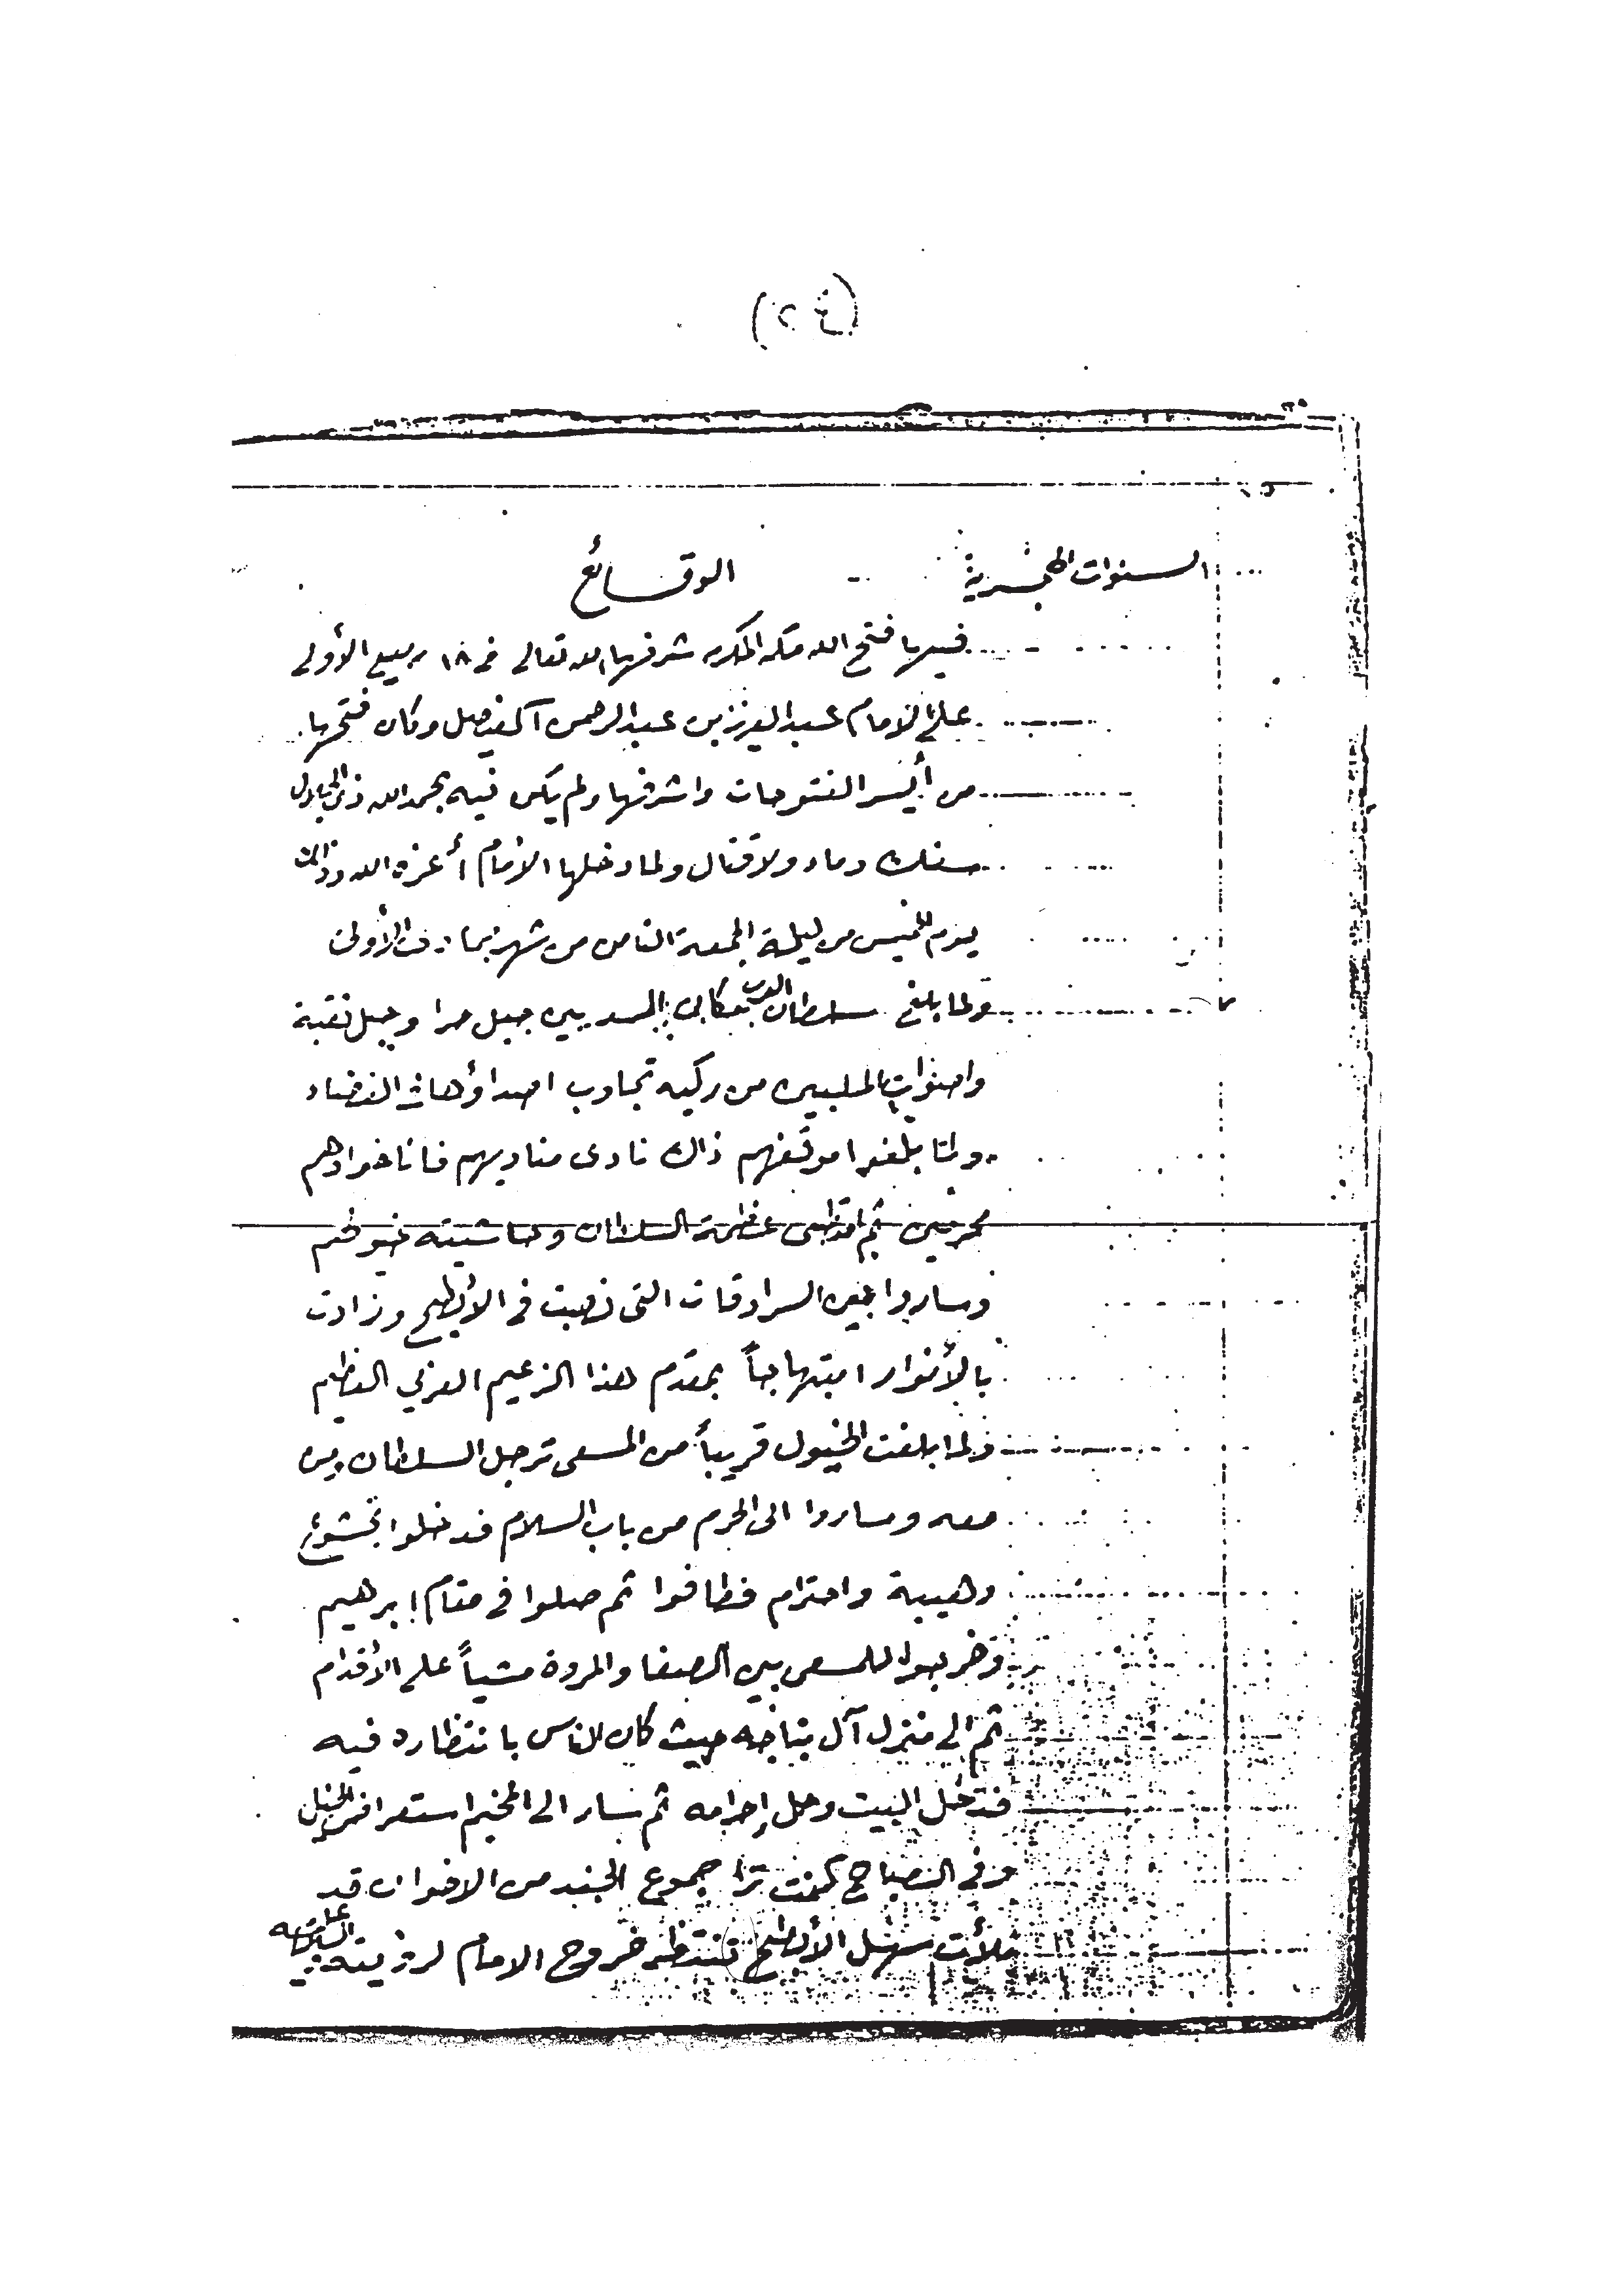 (٤٢)
السنوات الهجرية الوقائع
فيها فتح الله مكة المكرمه شرفها الله تعالى في ١٨ ربيع الأولى
على الامام عبد العزيز بن عبد الرحمن آل فيصل وكان فتحها
من أيسر الفتوحات واشرفها ولم يكن فيه بحمد الله ذي الجلال
سفك دماء ولا قتال ولما دخلها الامام أعزه الله وذالك
يوم الخميس من ليلة الجمعة الثامن من شهر جمادى الأولى
ولما بلغ سلطان العرب بين جبل حرا وجبل نقبة
واصوات الملبين من ركبه تجاوب اصداؤها في الفضاء
ولما بلغوا موقفهم ذاك نادى مناديهم فاناخوا وهم
محرمين ثم امتطى عظمة السلطان وحاشيته خيولهم
وساروا بين السرادقات التي نصبت في الأبطح وزادت
بالأنوار ابتهاجاً بمقدم هذا الزعيم العربي العظيم
فلما بلغت الخيول قريباً من المسعى ترجل السلطان ومن
معه وساروا الى الحرم من باب السلام فدخلوا بخشوع
وهيبة واحترام فطافوا ثم صلوا في مقام إبرهيم
وخرجوا للمسعى بين الصفا والمروة مشياً على الأقدام
ثم الى منزل آل بناجه حيث كان الناس بانتظاره فيه
فدخل البيت وحل إحرامه ثم سار الى المخيم استعرا
وفي الصباح كنت ترا جموع الجند من الاخوان قد
ملأت سهل الأبطح تنتظر خروج الامام لرؤيته